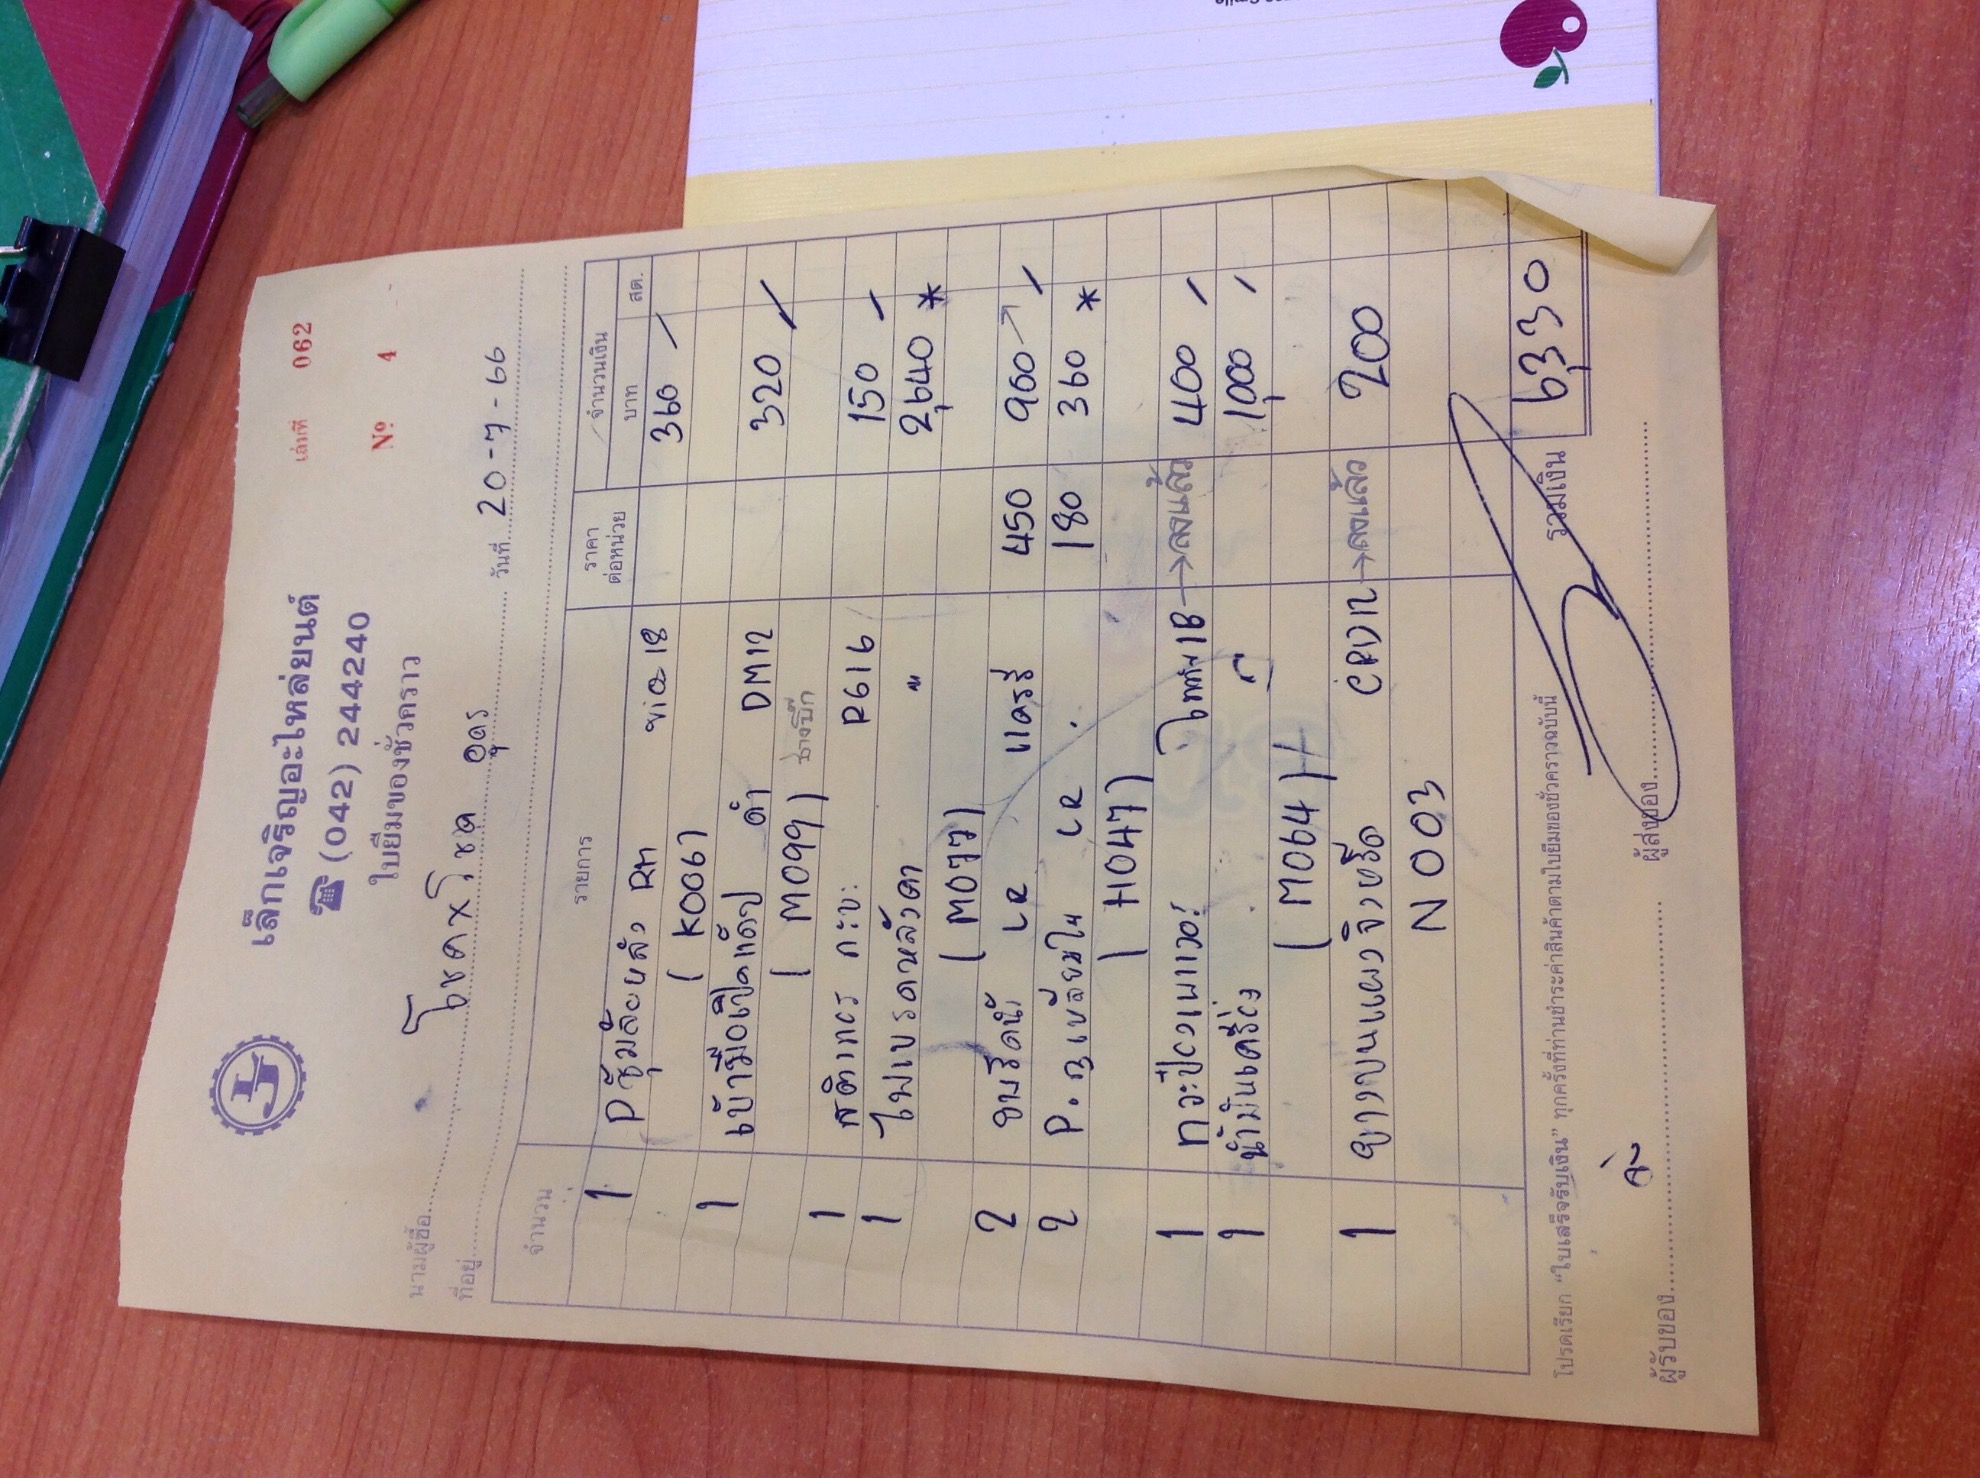 เล่มที่ 062
เล็กเจริญอะไหล่ยนต์
(042) 244240
Nº 4
ใบยืมของชั่วคราว
นามผู้ซื้อ โชคxโชค อุดร วันที่ 20-7-66
ที่อยู่
จำนวน รายการ ราคาต่อหน่วย จำนวนเงิน
บาท สต.
1 Pซุ้มล้อหลัง RH vio 18 360
(K0067)
1 เบ้ามือเปิดแค็ป ดำ DM12 320
(M099) ช่างบิ๊ก
1 สติกเกอร์ กะบะ R616 150
1 ไฟเบรคหลังคา " 2,640 *
(M077)
2 LR แครรี่ 450 900
2 LR 180 360 *
(H047)
1 เพาเวอร์ ไททัน1B → ลงแล้ว 400
1 น้ำมันเครื่อง 1,000
(M064)
1 → ลงแล้ว 200
N003
รวมเงิน 6,330
โปรดเรียก "ใบเสร็จรับเงิน" ทุกครั้งที่ท่านชำระค่าสินค้าตามใบยืมของชั่วคราวฉบับนี้
ผู้รับของ ผู้ส่งของ